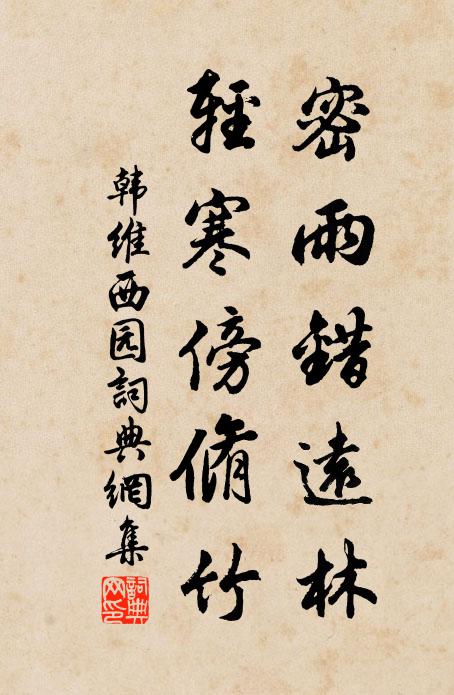 密雨錯遠林
輕寒傍脩竹
韩維西园詞典網集
詞典網印